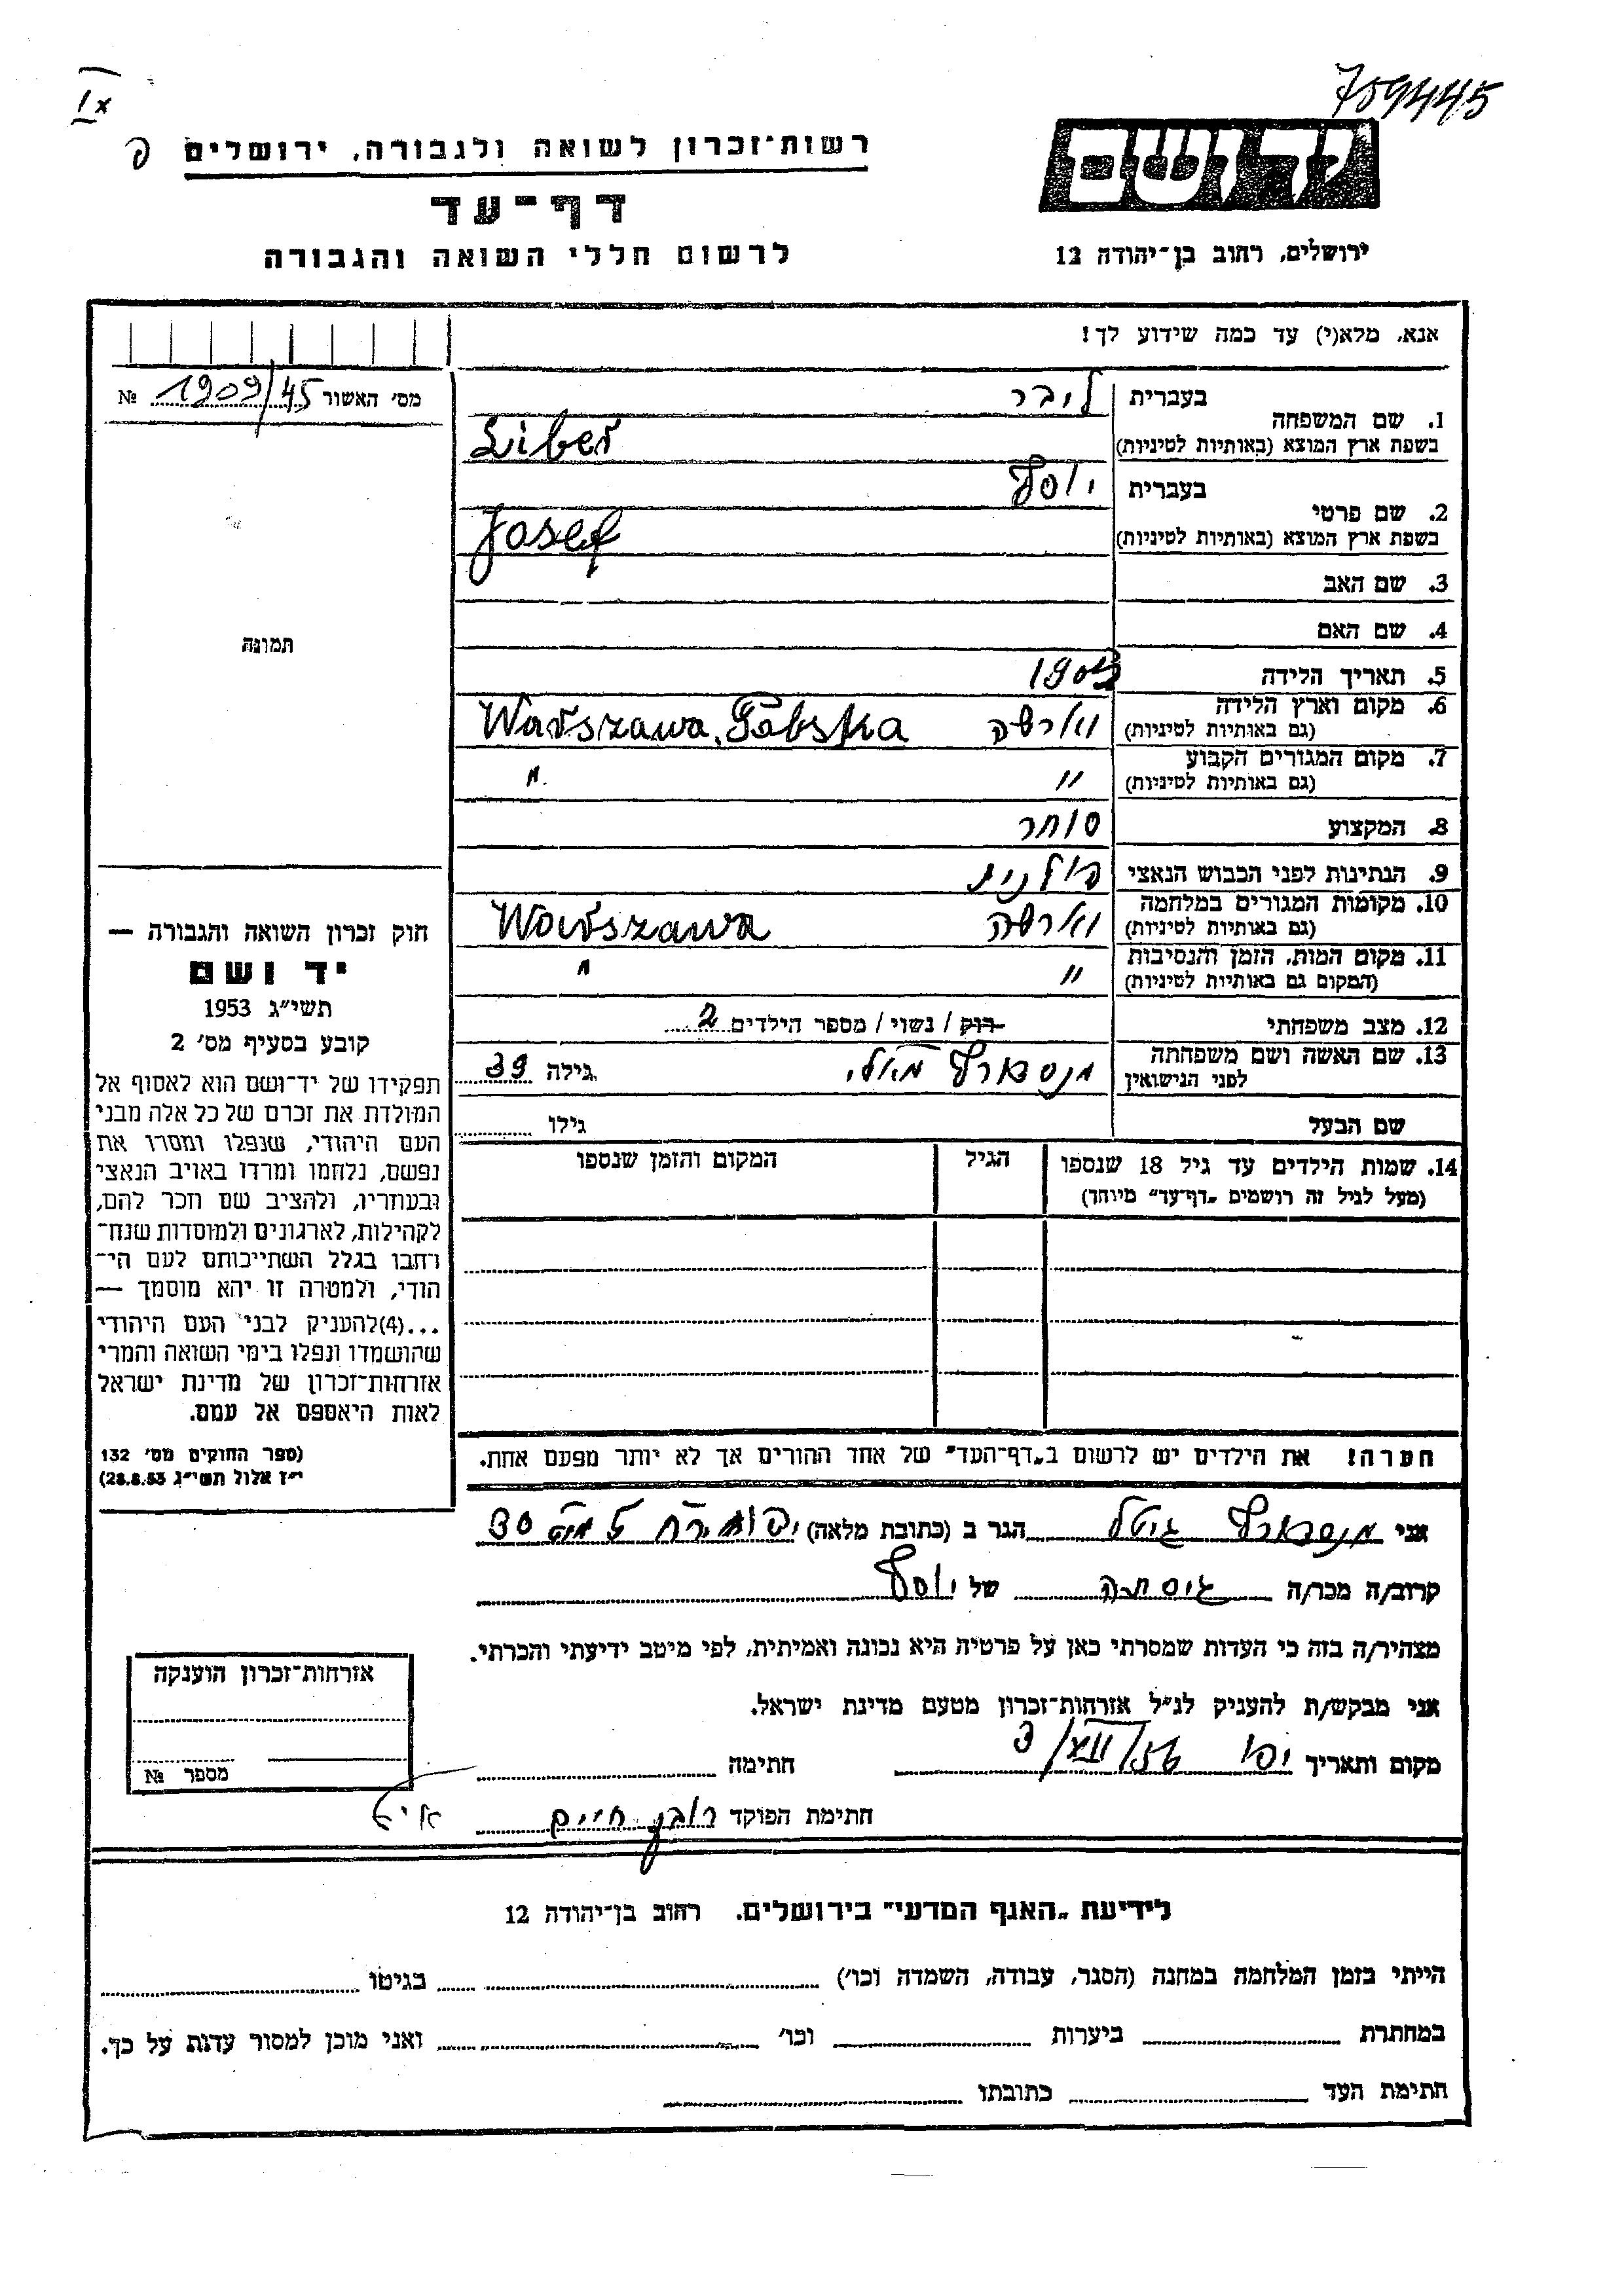 759445
IX
יד ושם
רשות־זכרון לשואה ולגבורה, ירושלים
דף־עד
ירושלים, רחוב בן־יהודה 12
לרשום חללי השואה והגבורה
אנא, מלא(י) עד כמה שידוע לך!
מס׳ האשור 1909/45 №
תמונה
1. שם המשפחה
בעברית ליבר
בשפת ארץ המוצא (באותיות לטיניות) Liber
2. שם פרטי
בעברית יוסף
בשפת ארץ המוצא (באותיות לטיניות) Josef
3. שם האב
4. שם האם
5. תאריך הלידה
6. מקום וארץ הלידה ווארשה Warszawa, Polska
(גם באותיות לטיניות)
7. מקום המגורים הקבוע
(גם באותיות לטיניות) " "
8. המקצוע סוחר
9. הנתינות לפני הכבוש הנאצי פולנית
10. מקומות המגורים במלחמה ווארשה Warszawa
(גם באותיות לטיניות)
11. מקום המות, הזמן והנסיבות
(המקום גם באותיות לטיניות) " "
12. מצב משפחתי רוק / נשוי / מספר הילדים 2
13. שם האשה ושם משפחתה
לפני הנישואין גילה 39
שם הבעל גילו
14. שמות הילדים עד גיל 18 שנספו הגיל המקום והזמן שנספו
(מעל לגיל זה רושמים „דף־עד" מיוחד)
הערה! את הילדים יש לרשום ב„דף־העד" של אחד ההורים אך לא יותר מפעם אחת.
חוק זכרון השואה והגבורה —
יד ושם
תשי״ג 1953
קובע בסעיף מס׳ 2
תפקידו של יד־ושם הוא לאסוף אל
המולדת את זכרם של כל אלה מבני
העם היהודי, שנפלו ומסרו את
נפשם, נלחמו ומרדו באויב הנאצי
ובעוזריו, ולהציב שם וזכר להם,
לקהילות, לארגונים ולמוסדות שנח־
רבו בגלל השתייכותם לעם הי־
הודי, ולמטרה זו יהא מוסמך —
...(4)להעניק לבני העם היהודי
שהושמדו ונפלו בימי השואה והמרי
אזרחות־זכרון של מדינת ישראל
לאות היאספם אל עמם.
(ספר החוקים מס׳ 132
י״ז אלול תשי״ג 28.8.53)
אני גיטל הגר ב (כתובת מלאה) 30
קרוב/ה מכר/ה גיסתה של יוסף
מצהיר/ה בזה כי העדות שמסרתי כאן על פרטיה היא נכונה ואמיתית, לפי מיטב ידיעתי והכרתי.
אני מבקש/ת להעניק לנ״ל אזרחות־זכרון מטעם מדינת ישראל.
מקום ותאריך יפו 3/XII/56 חתימה
חתימת הפוקד חיים
אזרחות־זכרון הוענקה
מספר №
לידיעת „האגף המדעי" בירושלים, רחוב בן־יהודה 12
הייתי בזמן המלחמה במחנה (הסגר, עבודה, השמדה וכו׳) בגיטו
במחתרת ביערות וכו׳ ואני מוכן למסור עדות על כך.
חתימת העד כתובתו